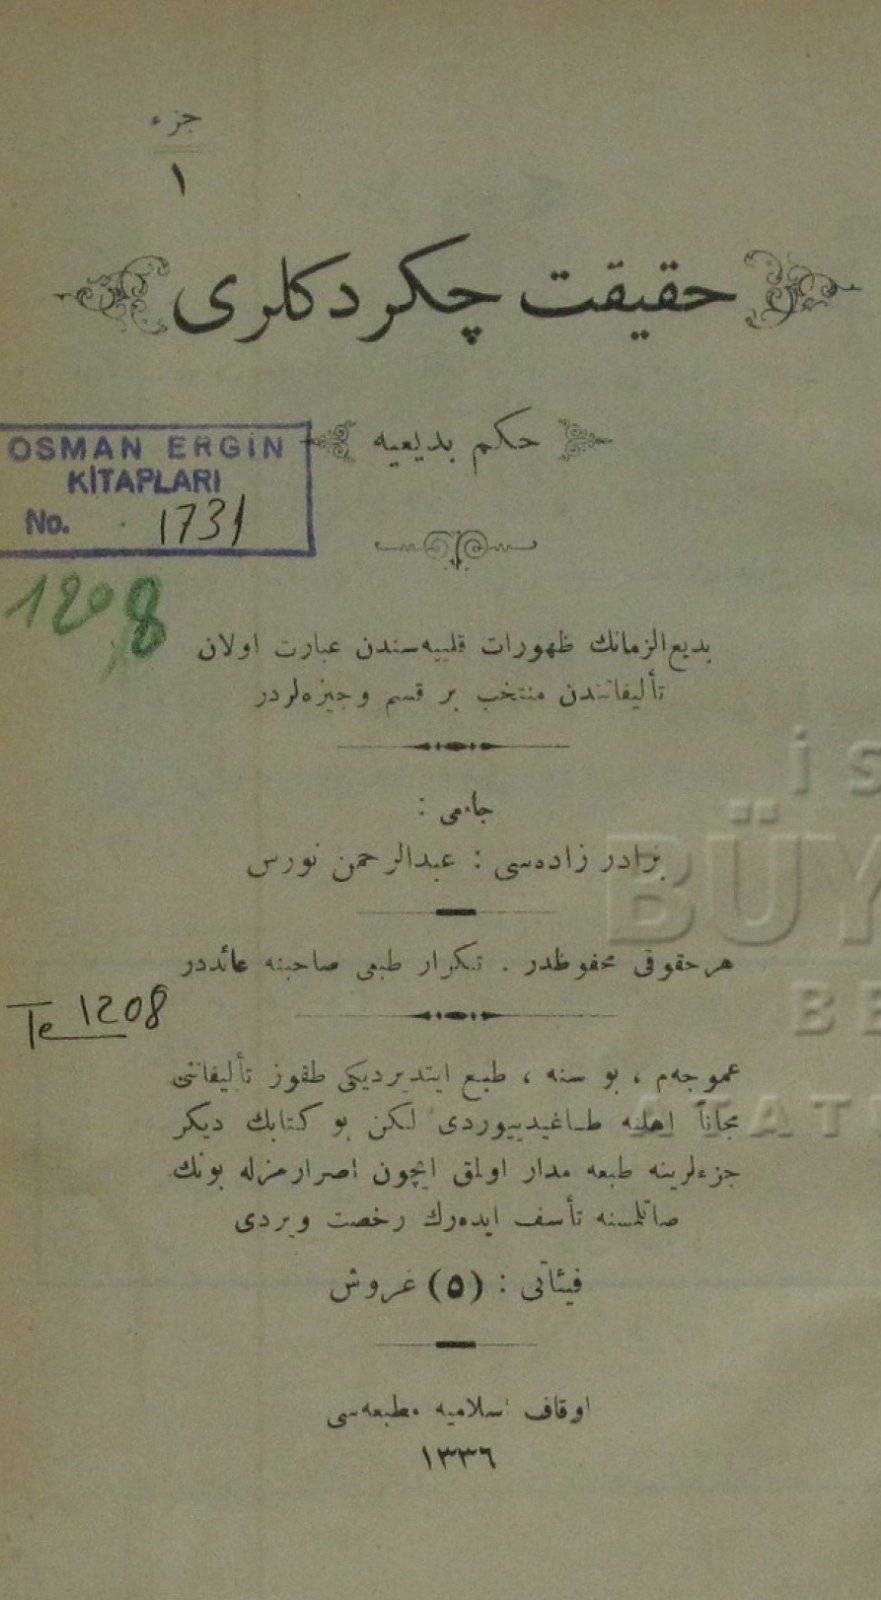 جزء
١
حقيقت چكردكلرى
حكم بديعيه
OSMAN ERGİN
KİTAPLARI
No. 1731
1208
بديع الزمانك ظهورات قلبيه‌سندن عبارت اولان
تأليفاتندن منتخب بر قسم وجيزه‌لردر
جامعى :
برادر زاده‌سى : عبدالرحمن نورس
هر حقوقى محفوظدر . تكرار طبعى صاحبنه عائددر
Te 1208
عموجه‌م ، بو سنه ، طبع ايتديرديكى طقوز تأليفاتنى
مجاناً اهلنه طاغيدييوردى لكن بو كتابك ديكر
جزءلرينه طبعه مدار اولمق ايچون اصرارمزله بونك
صاتلمسنه تأسف ايده‌رك رخصت ويردى
فيئاتى : (٥) غروش
اوقاف اسلاميه مطبعه‌سى
١٣٣٦
İS
BÜY
BE
ATAT